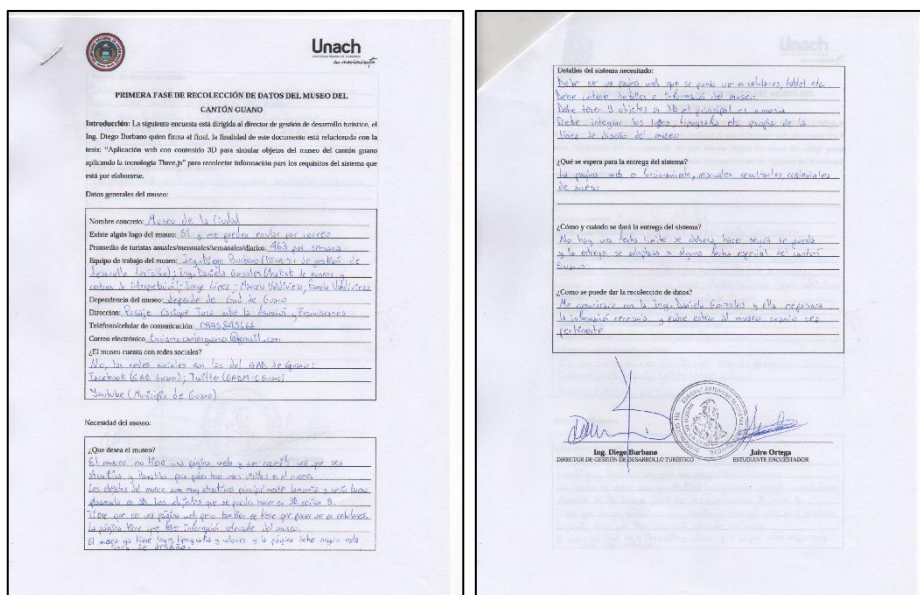 Unach
en movimiento
PRIMERA FASE DE RECOLECCIÓN DE DATOS DEL MUSEO DEL
CANTÓN GUANO
Introducción: La siguiente encuesta está dirigida al director de gestión de desarrollo turístico, el
Ing. Diego Burbano quien firma al final, la finalidad de este documento está relacionada con la
tesis: "Aplicación web con contenido 3D para simular objetos del museo del cantón guano
aplicando la tecnología Three.js" para recolectar información para los requisitos del sistema que
está por elaborarse.
Datos generales del museo:
Nombre concreto: Museo de la Ciudad
Existe algún logo del museo: Si y me pueden enviar por correo
Promedio de turistas anuales/mensuales/semanales/diarios: 463 por semana
Equipo de trabajo del museo: Ing. Diego Burbano (Director de gestión de
desarrollo turístico); Ing. Daniela Gonzales (Analista de museos y
centros de interpretación); Jorge López;
Dependencia del museo: depende de Gad de Guano
Direccion: Pasaje Cacique Toca entre la Asunción y
Teléfono/celular de comunicación:
Correo electrónico
¿El museo cuenta con redes sociales?
No, las redes sociales son las del GAD de Guano:
Facebook (GAD Guano); Twitter (GADM-C Guano)
Youtube (Municipio de Guano)
Necesidad del museo:
¿Que desea el museo?
El museo no tiene una página web y se necesita una que sea
atractiva y llamativa para poder tener mas visitas en el museo.
Los objetos del museo son muy atractivos principalmente la momia y sería bueno
plasmarlo en 3D. Los objetos que se pueden hacer en 3D serían 9.
Tiene que ser una página web pero también se tiene que poder ver en celulares.
La página tiene que tener información adecuada del museo.
El museo ya tiene logos, tipografía y colores y la página debe seguir esta
línea de diseño.
Unach
Detalles del sistema necesitado:
Debe ser una página web que se pueda ver en celulares, tablet etc.
Debe tener detalles e información del museo
Debe tener 9 objetos en 3D el principal es la momia
Debe integrar los logos, tipografía etc propia de la
línea de diseño del museo
¿Qué se espera para la entrega del sistema?
La página web en funcionamiento, manuales resultantes, credenciales
de acceso
¿Cómo y cuándo se dará la entrega del sistema?
No hay una fecha limite se deberá hacer según se pueda
y la entrega se adaptara a alguna fecha especial del cantón
Guano
¿Como se puede dar la recolección de datos?
Me comunicare con la Inga. Daniela Gonzales y ella
la información necesaria y podre entrar al museo cuando sea
pertinente
Ing. Diego Burbano
DIRECTOR DE GESTIÓN DE DESARROLLO TURÍSTICO
Jairo Ortega
ESTUDIANTE ENCUESTADOR